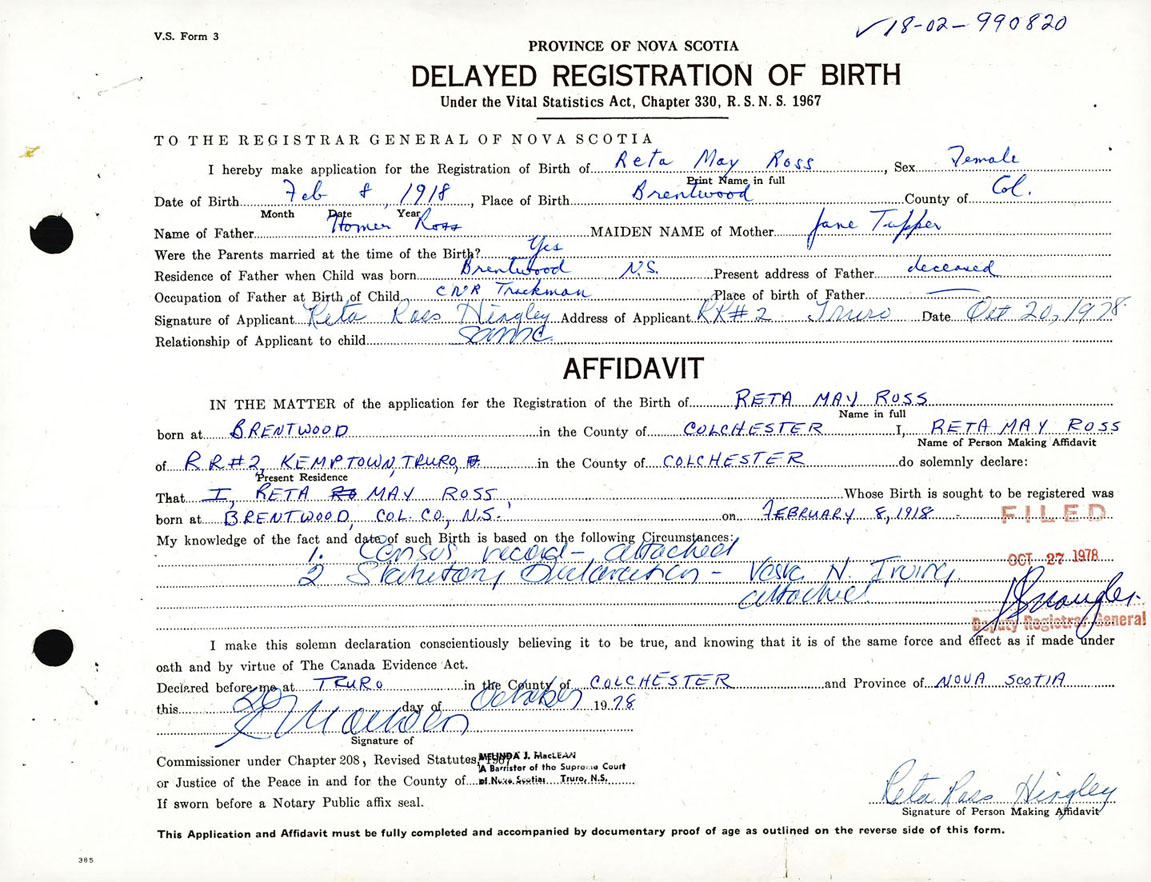 V.S. Form 3
✓18-02-990820
PROVINCE OF NOVA SCOTIA
DELAYED REGISTRATION OF BIRTH
Under the Vital Statistics Act, Chapter 330, R.S.N.S. 1967
TO THE REGISTRAR GENERAL OF NOVA SCOTIA
I hereby make application for the Registration of Birth of Reta May Ross, Sex Female
Print Name in full
Date of Birth Feb 8, 1918, Place of Birth Brentwood County of Col.
Month Date Year
Name of Father Homer Ross MAIDEN NAME of Mother Jane Tupper
Were the Parents married at the time of the Birth? Yes
Residence of Father when Child was born Brentwood N.S. Present address of Father deceased
Occupation of Father at Birth of Child CNR Trackman Place of birth of Father —
Signature of Applicant Reta Ross Hingley Address of Applicant RR#2 Truro Date Oct 20, 1978
Relationship of Applicant to child same
AFFIDAVIT
IN THE MATTER of the application for the Registration of the Birth of RETA MAY ROSS
Name in full
born at BRENTWOOD in the County of COLCHESTER I, RETA MAY ROSS
Name of Person Making Affidavit
of RR#2, KEMPTOWN, TRURO, in the County of COLCHESTER do solemnly declare:
Present Residence
That I, RETA MAY ROSS Whose Birth is sought to be registered was
born at BRENTWOOD, COL. CO., N.S. on FEBRUARY 8, 1918
FILED
My knowledge of the fact and date of such Birth is based on the following Circumstances:
1. Census record - attached
OCT 27 1978
2 Statutory Declaration - N. Irving
attached
Deputy Registrar General
I make this solemn declaration conscientiously believing it to be true, and knowing that it is of the same force and effect as if made under
oath and by virtue of The Canada Evidence Act.
Declared before me at TRURO in the County of COLCHESTER and Province of NOVA SCOTIA
this day of October 1978
Signature of
Commissioner under Chapter 208, Revised Statutes, 1967
MELINDA J. MacLEAN
A Barrister of the Supreme Court
or Justice of the Peace in and for the County of
of Nova Scotia Truro, N.S.
If sworn before a Notary Public affix seal.
Reta Ross Hingley
Signature of Person Making Affidavit
This Application and Affidavit must be fully completed and accompanied by documentary proof of age as outlined on the reverse side of this form.
385